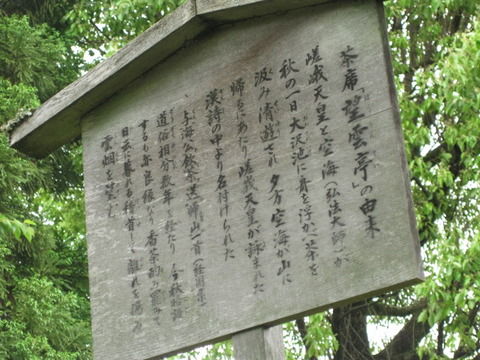 茶席「望雲亭」の由来
嵯峨天皇と空海（弘法大師）が
秋の一日大沢池に身を浮かべ茶を
汲み清遊され夕方空海が山に
帰るにあたり嵯峨天皇が詠まれた
漢詩の中より名付けられた
与海公飲茶送帰山一首（経国集）
道俗相分数年を経たり 今秋晤語
するも亦良縁なり 香茶酌み罷みて
日云に暮れる 稽首して離れを
雲烟を望む